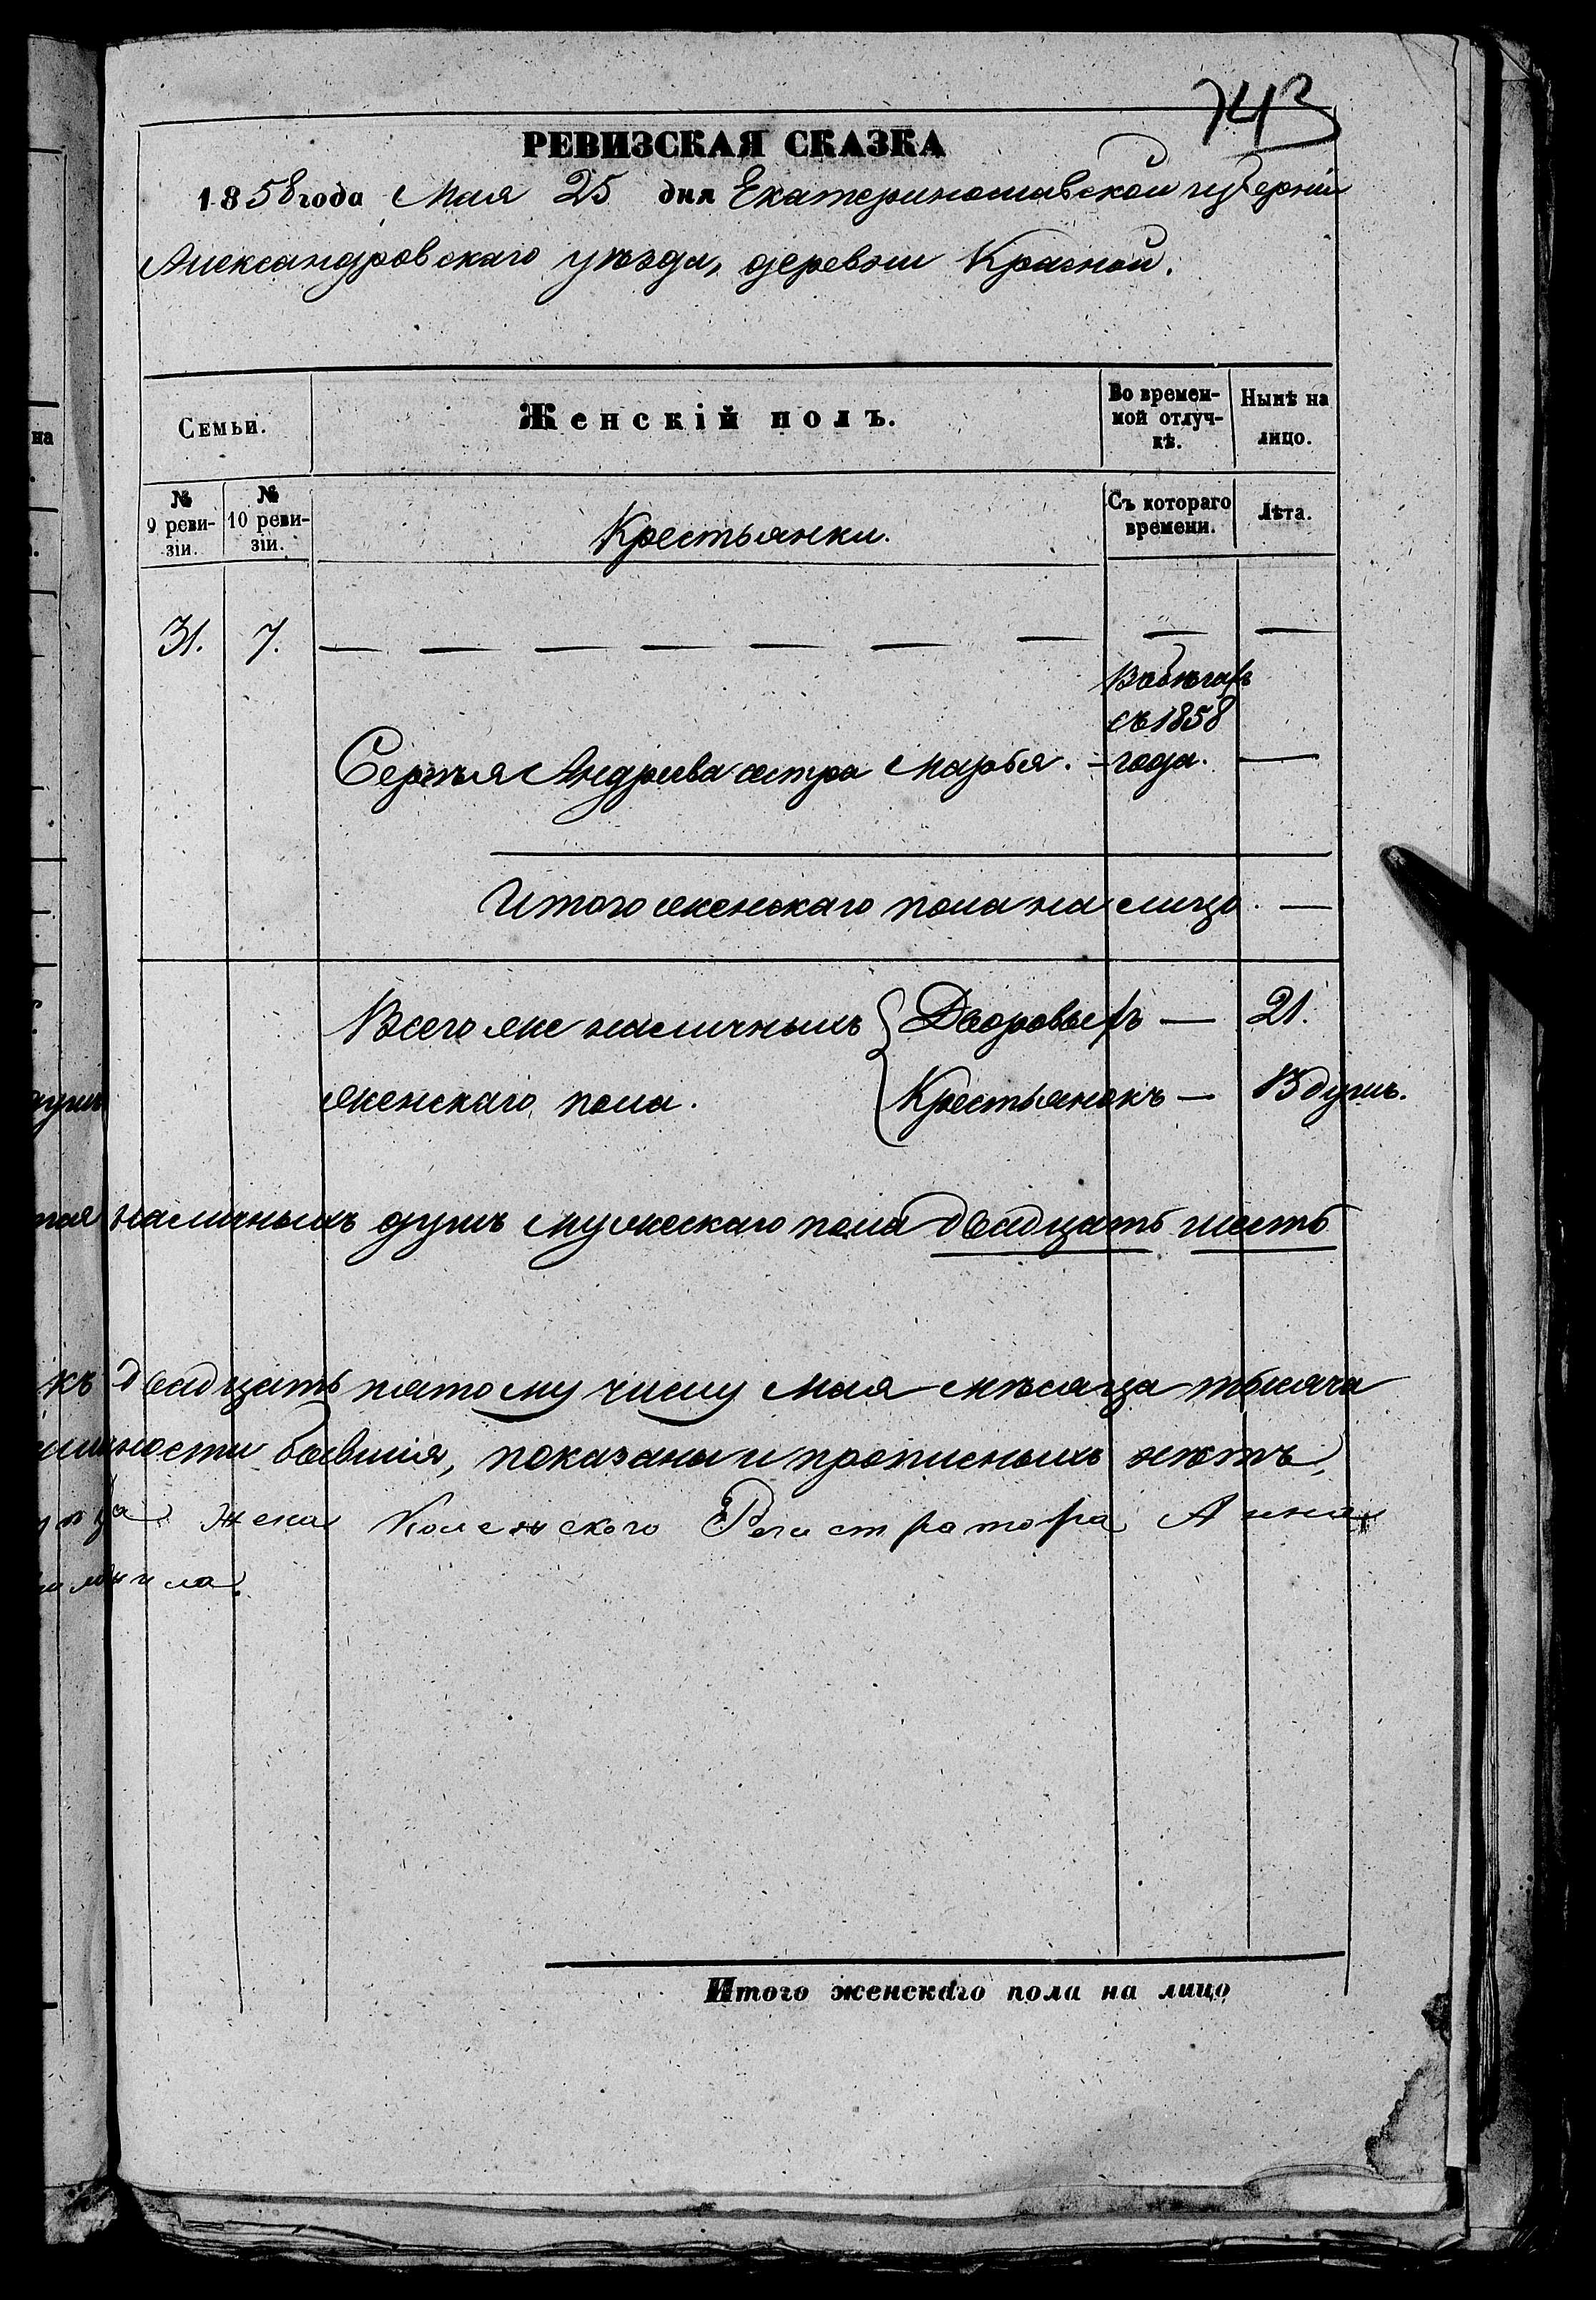 743
РЕВИЗСКАЯ СКАЗКА
1858 года Мая 25 дня Екатеринославской губерніи
Александровскаго уѣзда, деревни Красной.
Семьи.
Женскій полъ.
Во времен-
ной отлуч-
кѣ.
Нынѣ на
лицо.
№
9 реви-
зіи.
№
10 реви-
зіи.
Крестьянки.
Съ котораго
времени.
Лѣта.
31. 7. — — — — — — — — —
Въ бѣгахъ
съ 1858
Сергѣя Андреева сестра Марѳья. — года. —
Итого женскаго пола на лицо. —
Всего же наличныхъ { Дворовыхъ — 21.
женскаго пола. Крестьянокъ — 13 душъ.
наличныхъ душъ мужескаго пола двадцать шесть
къ двадцать пятому числу Мая мѣсяца тысяча
бывшія, показаны и прописныхъ нѣтъ,
жена Колежского Регистратора Анна
Итого женскаго пола на лицо
на
душъ